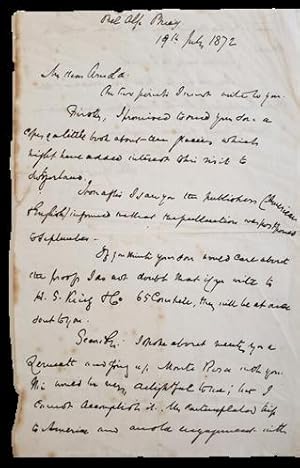 Bel Alp Brieg
19th July 1872
My dear Arnold:
On two points I must write to you.
Firstly, I promised to send your son a
copy of a little book about the glaciers which
might have added interest to his visit to
Switzerland.
Soon after I saw you the publishers (American
& English) informed me that the publication was postponed
to September.
If you think your son would care about
the proofs I do not doubt that if you write to
H. S. King & Co 65 Cornhill, they will be at once
sent to you.
Secondly: I spoke about meeting you at
Zermatt and going up Monte Rosa with you.
This would be very delightful to me; but I
cannot accomplish it. My contemplated trip
to America and an old engagement with